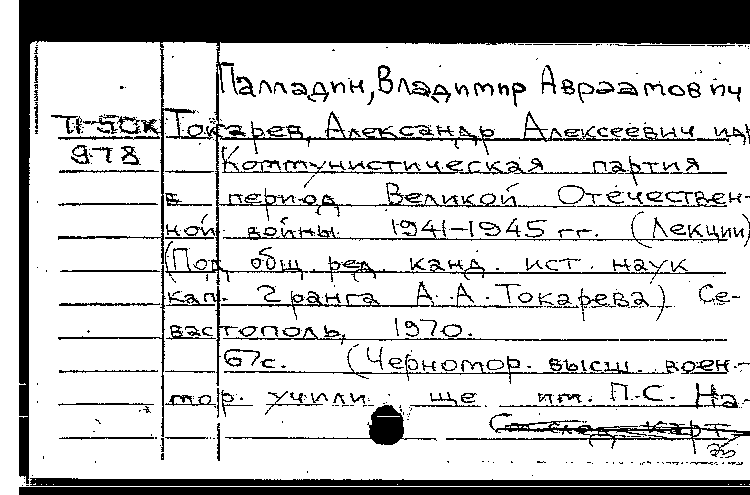 Палладин, Владимир Авраамович
П-50к Токарев, Александр Алексеевич и др
978 Коммунистическая партия
в период Великой Отечествен-
ной войны 1941-1945 гг. (Лекции)
(Под общ. ред. канд. ист. наук
кап. 2 ранга А.А. Токарева) Се-
вастополь, 1970.
67с. (Черномор. высш. воен.-
мор. учили ще им. П.С. На-